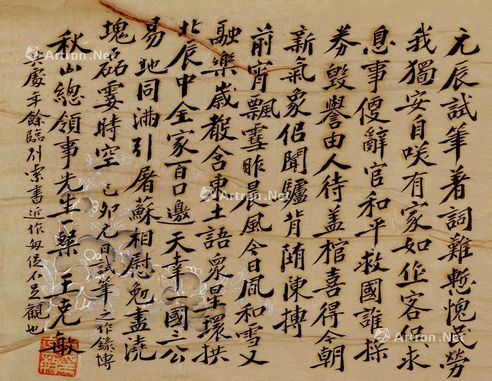 元辰試筆著詞難慙愧民勞
我獨安自咲有家如作客但求
息事便辭官和平救國誰操
券毀譽由人待盖棺喜得今朝
新氣象佀聞驢背陳摶
前宵飄雪昨晨風今日風和雪又
融樂歲含東土語衆星環拱
北辰中全家百口邀天幸一國三公
易地同滿引屠蘇相慰勉盡澆
塊磊霎時空 己卯元日試筆之作錄博
秋山總領事先生粲王克敏
共處年餘臨別索書近作匆促不足觀也
Artron.Net
Artron.Net
Artron.Net